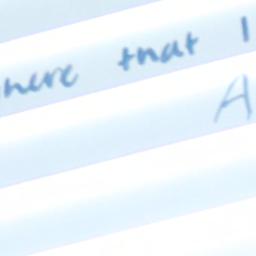 here that I
A